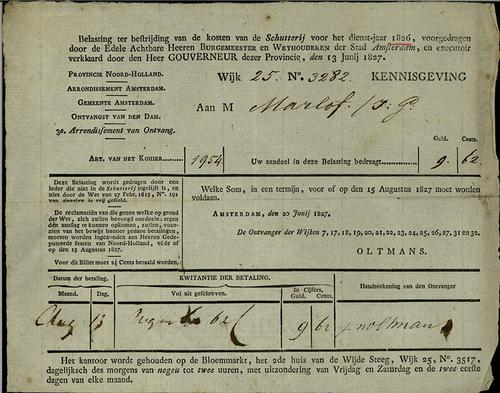 Belasting ter bestrijding van de kosten van de Schutterij voor het dienst-jaar 1826, voorgedragen
door de Edele Achtbare Heeren BURGEMEESTER en WETHOUDEREN der Stad Amsterdam, en executoir
verklaard door den Heer GOUVERNEUR dezer Provincie, den 13 Junij 1827.
PROVINCIE NOORD-HOLLAND.
ARRONDISSEMENT AMSTERDAM.
GEMEENTE AMSTERDAM.
ONTVANGST VAN DEN DAM.
3o. Arrondissement van Ontvang.
WIJK 25. No. 3282. KENNISGEVING
Aan M Marlof
ART. VAN HET KOHIER 1954
Guld. Cents.
Uw aandeel in deze Belasting bedraagt 9. 62
Deze Belasting wordt gedragen door een
ieder die niet in de Schutterij ingelijft is, en
niet door de Wet van 17 Febr. 1825, No. 191
van dezelve is vrij gesteld.
De reclamatiën van die genen welke op grond
der Wet, zich zullen bevoord oordeelen tegen
dén aanslag te kunnen opkomen, zullen, voor-
zien van het bewijs hunner gedane betalingen,
moeten worden ingezonden aan Heeren Gede-
puteerde Staten van Noord-Holland, vóór of
op den 15 Augustus 1827.
Voor dit Billet moet 2½ Cents betaald worden.
Welke Som, in een termijn, voor of op den 15 Augustus 1827 moet worden
voldaan.
AMSTERDAM, den 20 Junij 1827.
De Ontvanger der Wijken 7, 17, 18, 19, 20, 21, 22, 23, 24, 25, 26, 27, 28, 29, 30, 31 en 32.
OLTMANS.
Datum der betaling.
Maand. Dag.
KWITANTIE DER BETALING.
Vol uit geschreven.
In Cijfers.
Guld. Cents.
Handteekening van den Ontvanger
Aug 13 Negen 62 9 62 Oltmans
Het kantoor wordt gehouden op de Bloemmarkt, het 2de huis van de Wijde Steeg, Wijk 25, No. 3517,
dagelijksch des morgens van negen tot twee uuren, met uitzondering van Vrijdag en Zaturdag en de twee eerste
dagen van elke maand.